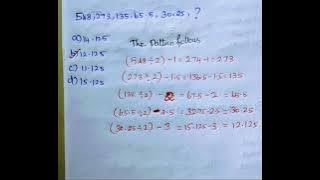 548, 273, 135. 65.5, 30.25, ?
a) 14.125
b) 12.125
c) 11.125
d) 15.125
The Pattern follows
(548 ÷ 2) - 1 = 274 - 1 = 273
(273 ÷ 2) - 1.5 = 136.5 - 1.5 = 135
(135 ÷ 2) - 2 = 67.5 - 2 = 65.5
(65.5 ÷ 2) - 2.5 = 32.75 - 2.5 = 30.25
(30.25 ÷ 2) - 3 = 15.125 - 3 = 12.125